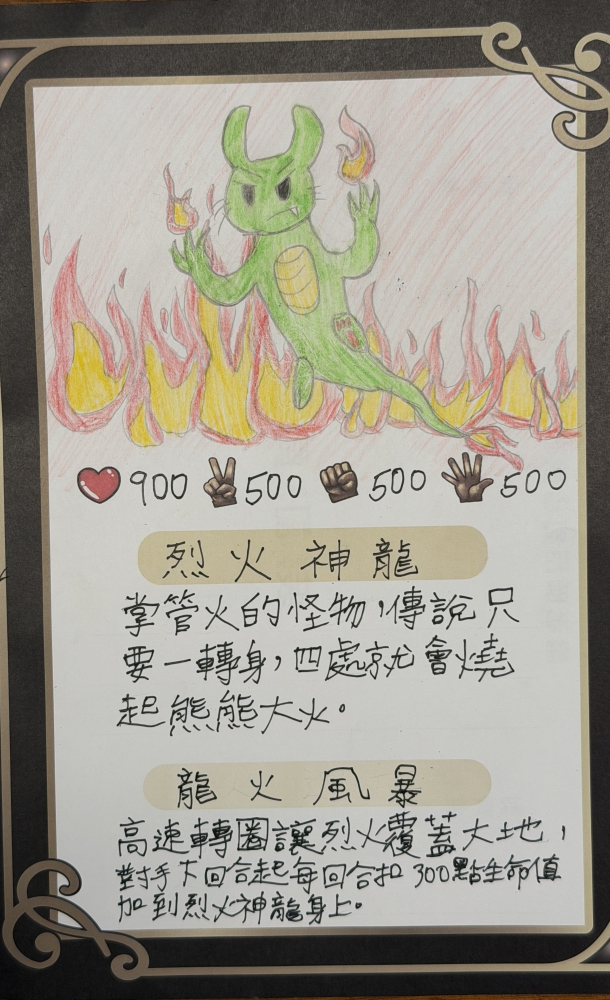 900 500 500 500
烈火神龍
掌管火的怪物，傳說只
要一轉身，四處就會燒
起熊熊大火。
龍火風暴
高速轉圈讓烈火覆蓋大地，
對手下回合起每回合扣300點生命值
加到烈火神龍身上。